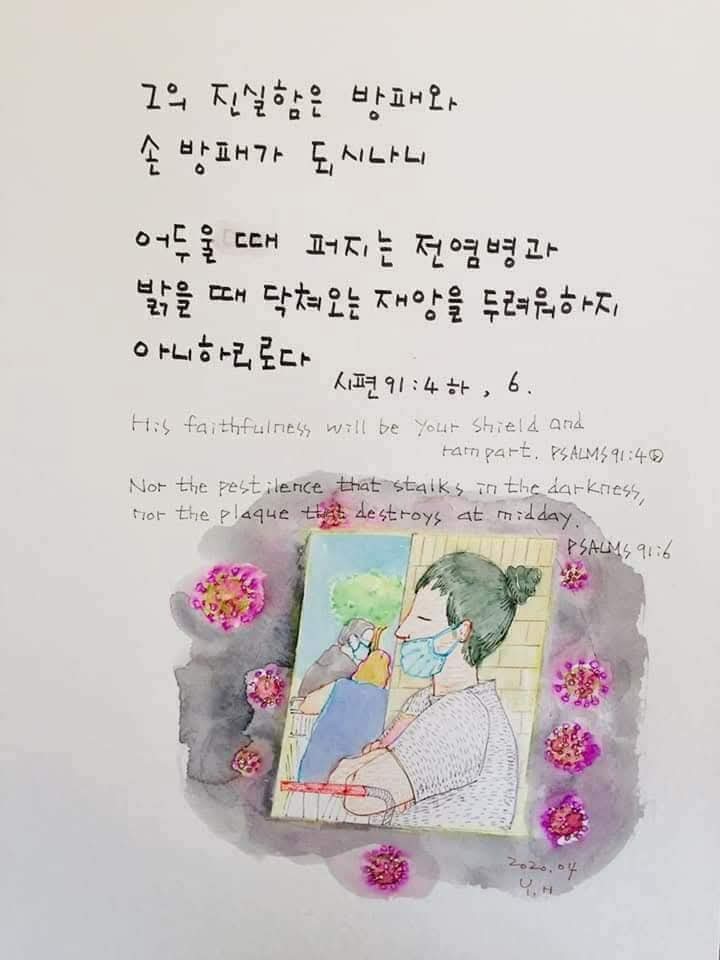 그의 진실함은 방패와
손 방패가 되시나니
어두울 때 퍼지는 전염병과
밝을 때 닥쳐오는 재앙을 두려워하지
아니하리로다
시편 91:4 하, 6.
His faithfulness will be your shield and
rampart. PSALMS 91:4ⓑ
Nor the pestilence that stalks in the darkness,
nor the plaque that destroys at midday.
PSALMS 91:6
2020.04
Y.H